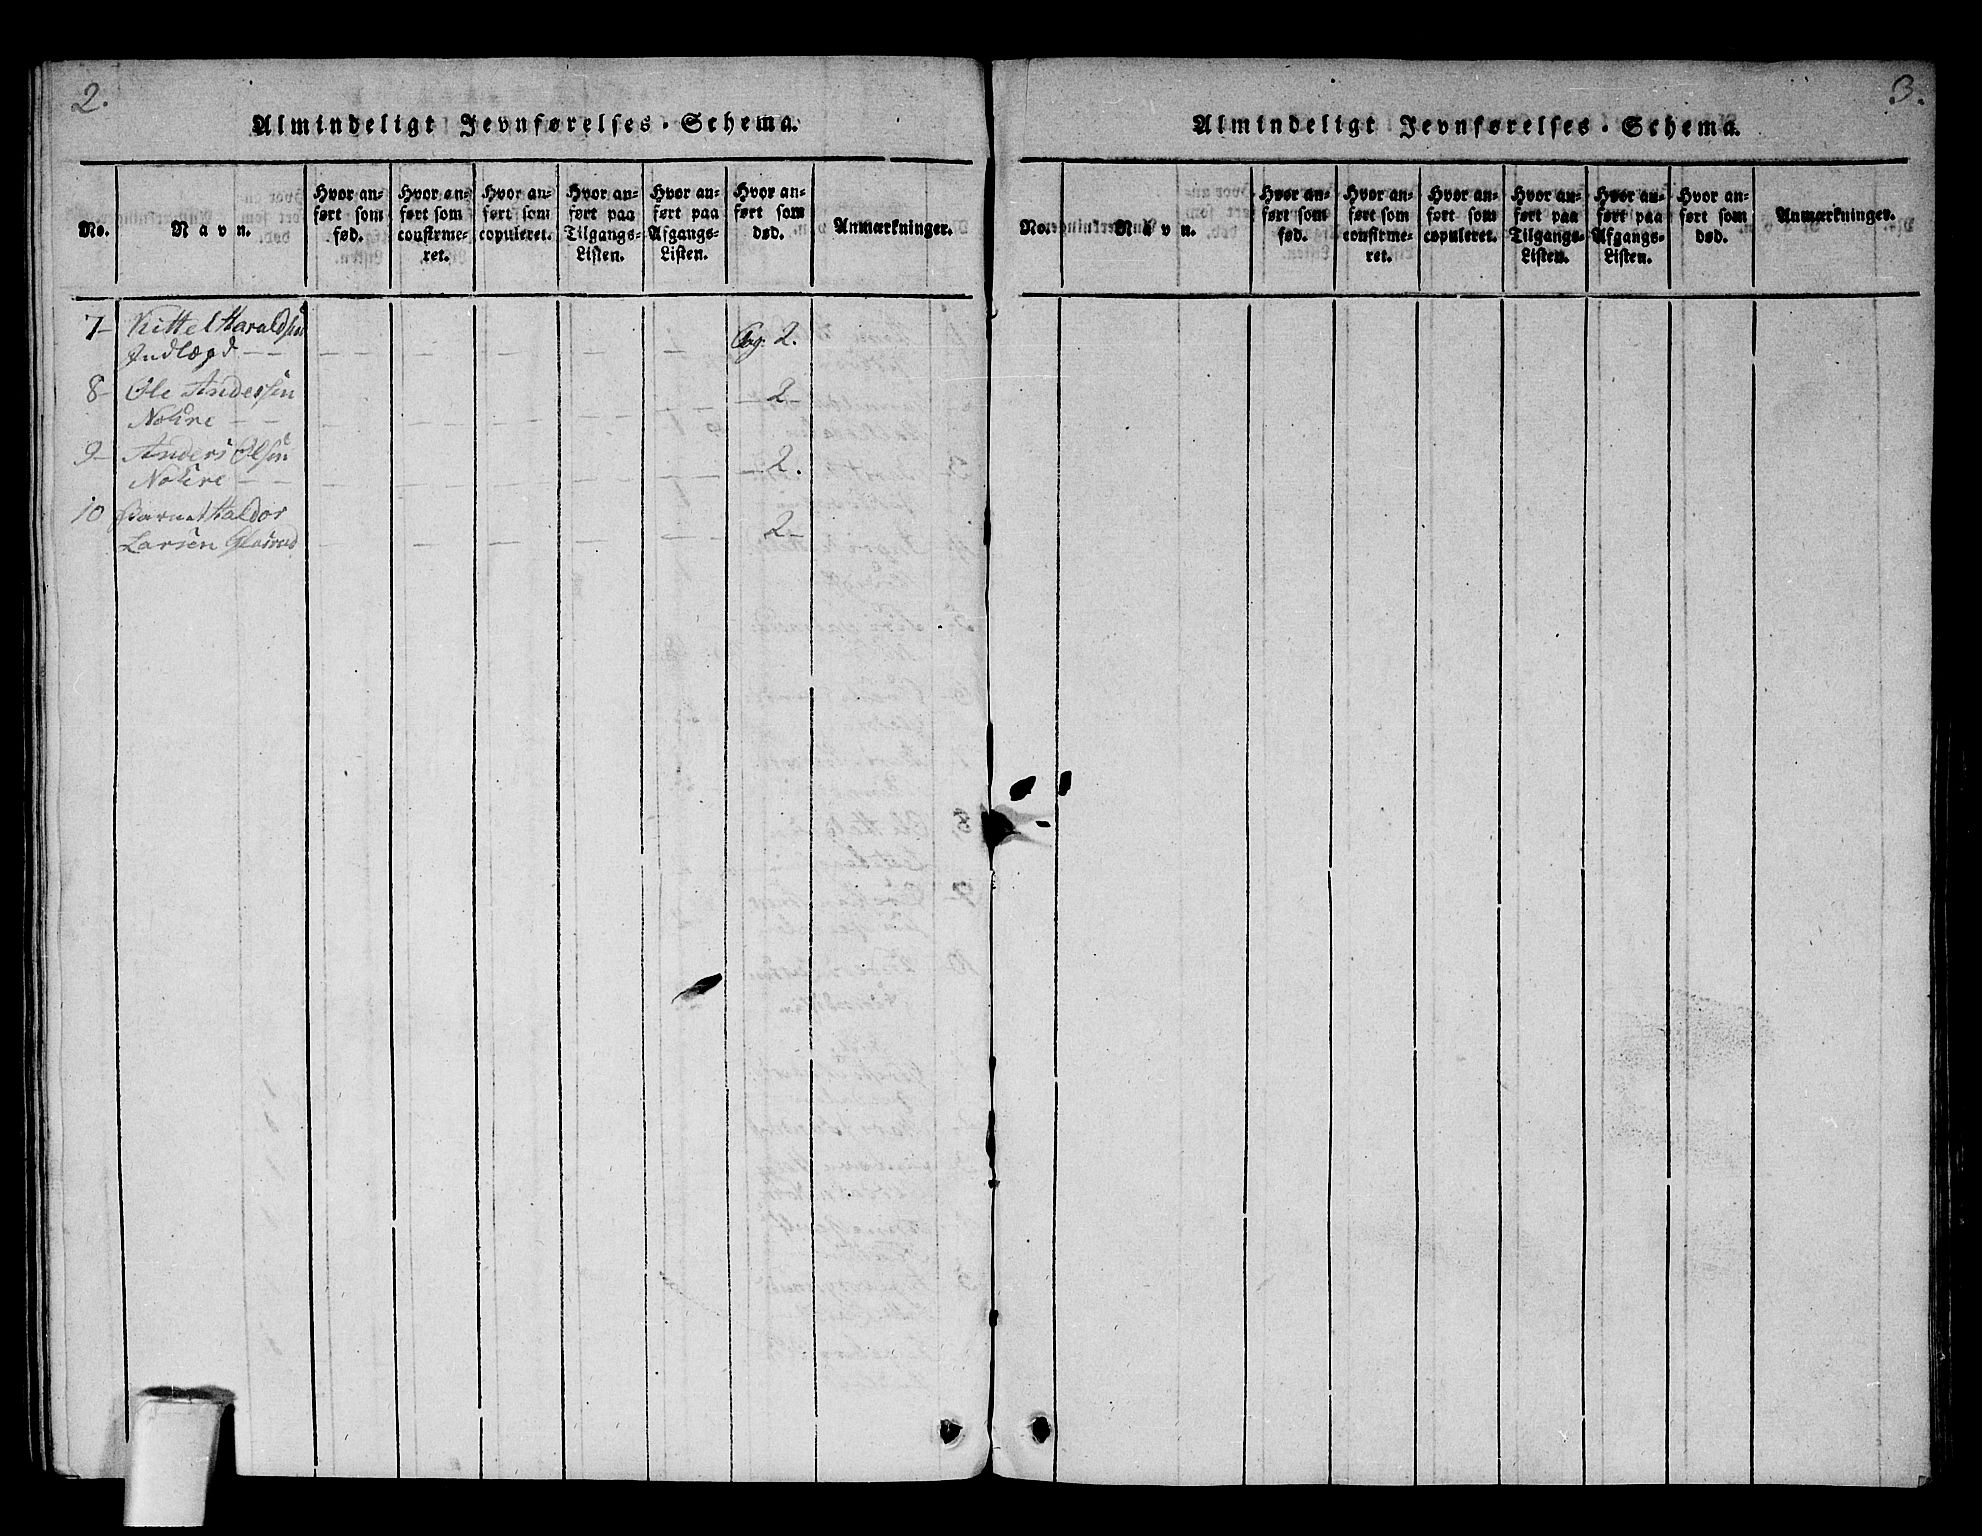 2.
Almindeligt Jevnførelses-Schema.
No.
Navn.
Hvor an-
ført som
fød.
Hvor an-
ført som
confirme-
ret.
Hvor an-
ført som
copuleret.
Hvor an-
ført paa
Tilgangs-
Listen.
Hvor an-
ført paa
Afgangs-
Listen.
Hvor an-
ført som
død.
Anmærkninger.
7- Kittel Haraldsen
Indlægd - - - - - - - Pag. 2.
8- Ole Andersen - 2-
Nokre - - - - - - -
9- Anders Olsen - 2.
Nokre - - - - - - -
10 Barnet Haldor
Larsen - - - - - - 2-
3.
Almindeligt Jevnførelses-Schema.
No.
Navn.
Hvor an-
ført som
fød.
Hvor an-
ført som
confirme-
ret.
Hvor an-
ført som
copuleret.
Hvor an-
ført paa
Tilgangs-
Listen.
Hvor an-
ført paa
Afgangs-
Listen.
Hvor an-
ført som
død.
Anmærkninger.